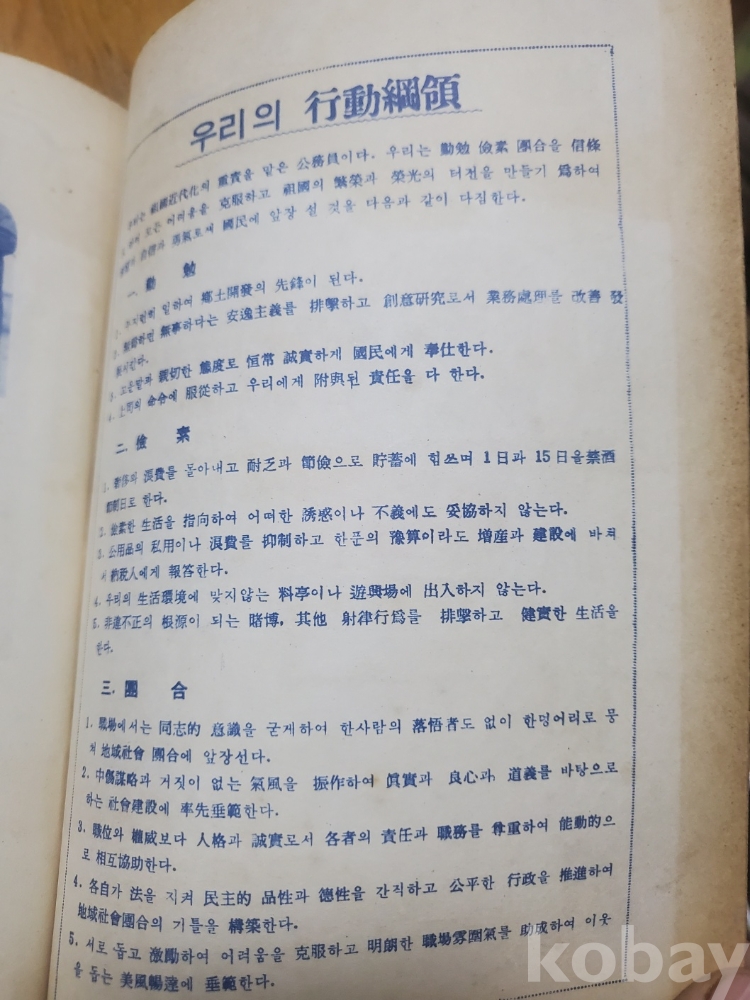 우리의 行動綱領
우리는 祖國近代化의 重責을 맡은 公務員이다. 우리는 勤勉 儉素 團合을 信條
모든 어려움을 克服하고 祖國의 繁榮과 榮光의 터전을 만들기 爲하여
勇氣로써 國民에 앞장 설 것을 다음과 같이 다짐한다.
一. 勤 勉
1. 부지런히 일하여 鄕土開發의 先鋒이 된다.
2. 無事하다는 安逸主義를 排擊하고 創意硏究로서 業務處理를 改善 發
3. 고운말과 親切한 態度로 恒常 誠實하게 國民에게 奉仕한다.
4. 上司의 命令에 服從하고 우리에게 附與된 責任을 다 한다.
二. 儉 素
1. 浪費를 몰아내고 耐乏과 節儉으로 貯蓄에 힘쓰며 1日과 15日을 禁酒
日로 한다.
2. 儉素한 生活을 指向하여 어떠한 誘惑이나 不義에도 妥協하지 않는다.
3. 公用品의 私用이나 浪費를 抑制하고 한푼의 豫算이라도 增産과 建設에 바쳐
서 納稅人에게 報答한다.
4. 우리의 生活環境에 맞지않는 料亭이나 遊興場에 出入하지 않는다.
5. 非違不正의 根源이 되는 賭博, 其他 射律行爲를 排擊하고 健實한 生活을
한다.
三. 團 合
1. 職場에서는 同志的 意識을 굳게하여 한사람의 落悟者도 없이 한덩어리로 뭉
쳐 地域社會 團合에 앞장선다.
2. 中傷謀略과 거짓이 없는 氣風을 振作하여 眞實과 良心과, 道義를 바탕으로
하는 社會建設에 率先垂範한다.
3. 職位와 權威보다 人格과 誠實로서 各者의 責任과 職務를 尊重하여 能動的으
로 相互協助한다.
4. 各自가 法을 지켜 民主的 品性과 德性을 간직하고 公平한 行政을 推進하여
地域社會團合의 기틀을 構築한다.
5. 서로 돕고 激勵하여 어려움을 克服하고 明朗한 職場雰圍氣를 助成하여 이웃
을 돕는 美風暢達에 垂範한다.
kobay